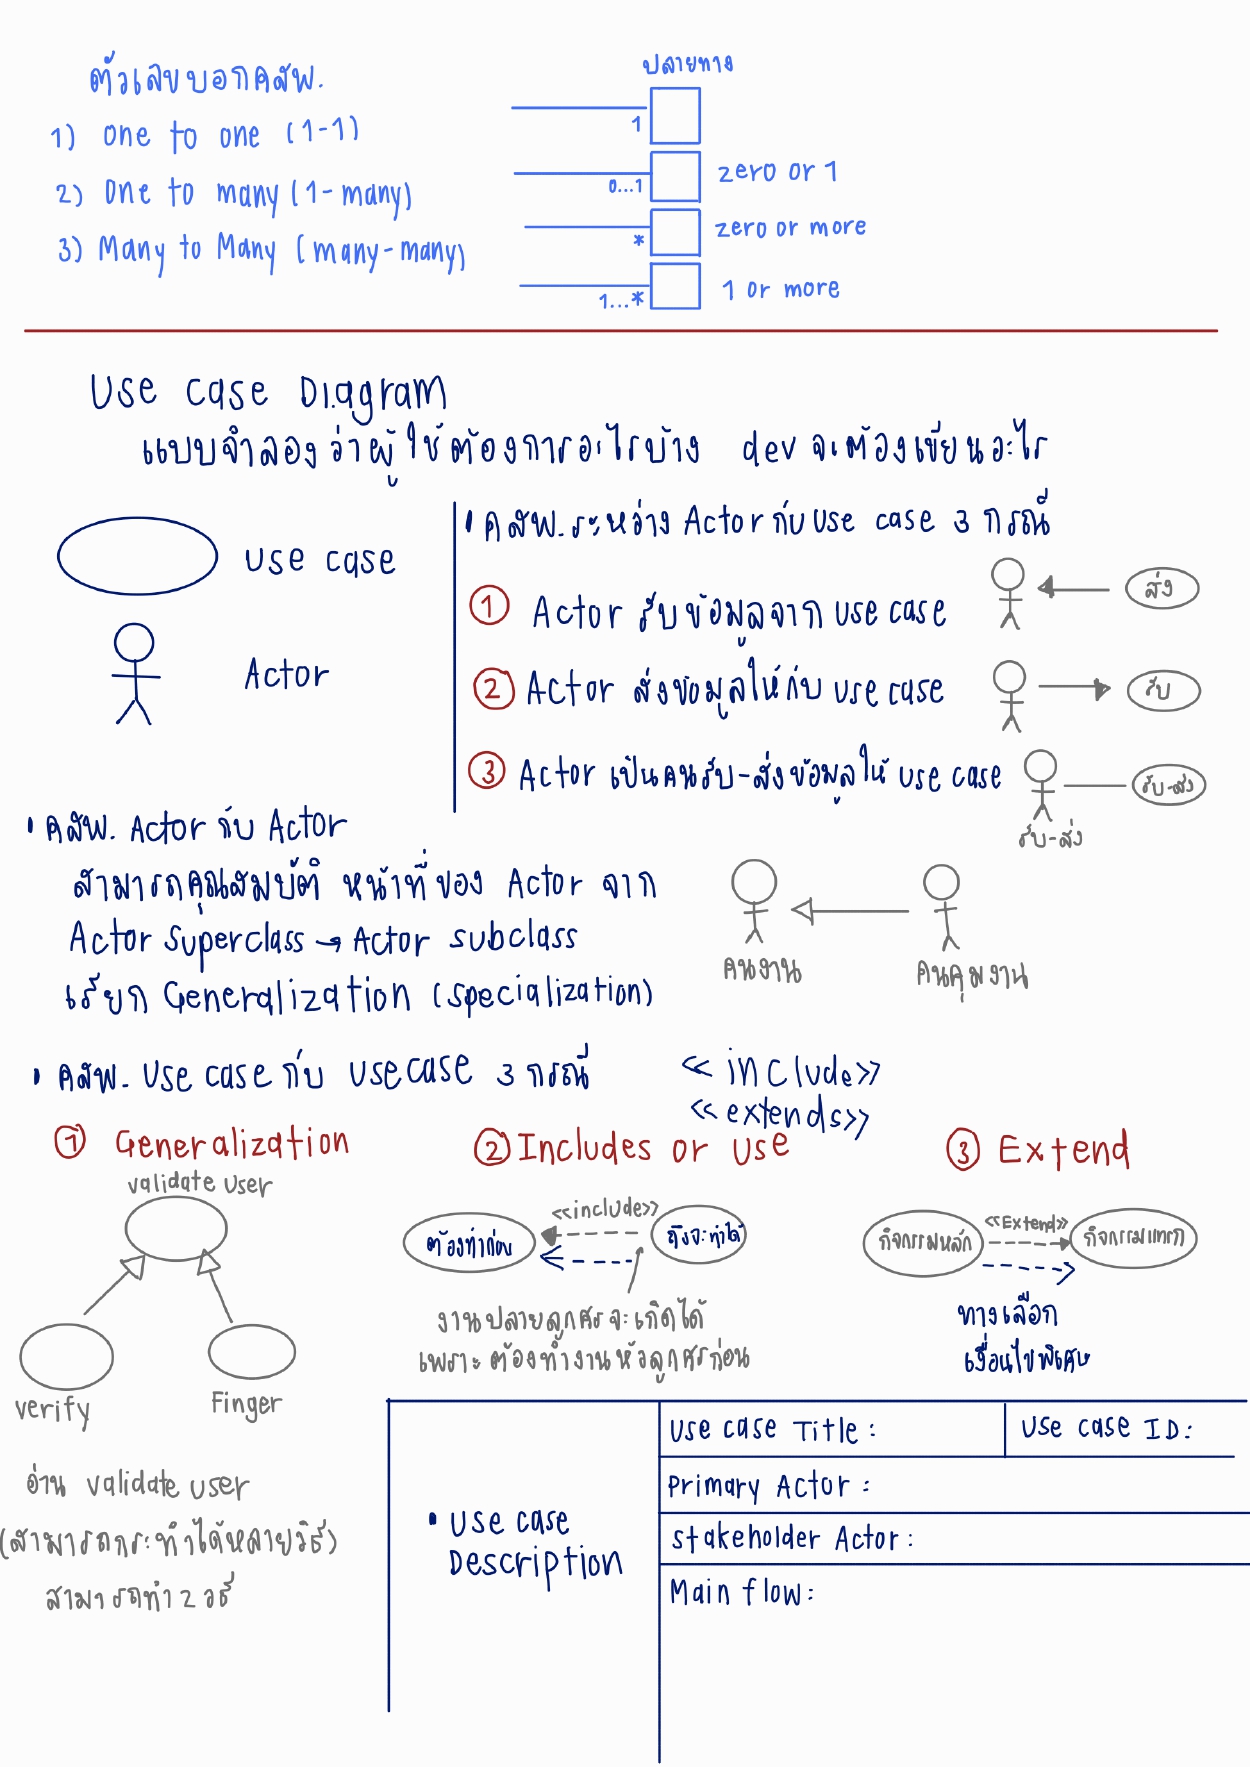 ตัวเลขบอกคสพ.
1) one to one (1-1)
2) One to many (1-many)
3) Many to Many (many-many)
ปลายทาง
1
0...1
zero or 1
*
zero or more
1...*
1 or more
Use case Diagram
แบบจำลองว่าผู้ใช้ต้องการอะไรบ้าง dev จะต้องเขียนอะไร
use case
Actor
• คสพ. ระหว่าง Actor กับ Use case 3 กรณี
① Actor รับข้อมูลจาก use case
ส่ง
② Actor ส่งข้อมูลให้กับ use case
รับ
③ Actor เป็นคนรับ-ส่งข้อมูลให้ use case
รับ-ส่ง
รับ-ส่ง
• คสพ. Actor กับ Actor
สามารถคุณสมบัติ หน้าที่ของ Actor จาก
Actor Superclass → Actor subclass
เรียก Generalization (specialization)
คนงาน
คนคุมงาน
• คสพ. Use case กับ usecase 3 กรณี
<< include>>
<<extends>>
① Generalization
validate user
verify
Finger
อ่าน validate user
(สามารถกระทำได้หลายวิธี)
สามารถทำ 2 วธี
② Includes or use
ต้องทำก่อน
<<include>>
ถึงจะทำได้
งานปลายลูกศรจะเกิดได้
เพราะ ต้องทำงานหัวลูกศรก่อน
③ Extend
กิจกรรมหลัก
<<Extend>>
กิจกรรมแทรก
ทางเลือก
เงื่อนไขพิเศษ
• use case
Description
Use case Title :
Use case ID:
Primary Actor :
stakeholder Actor :
Main flow: